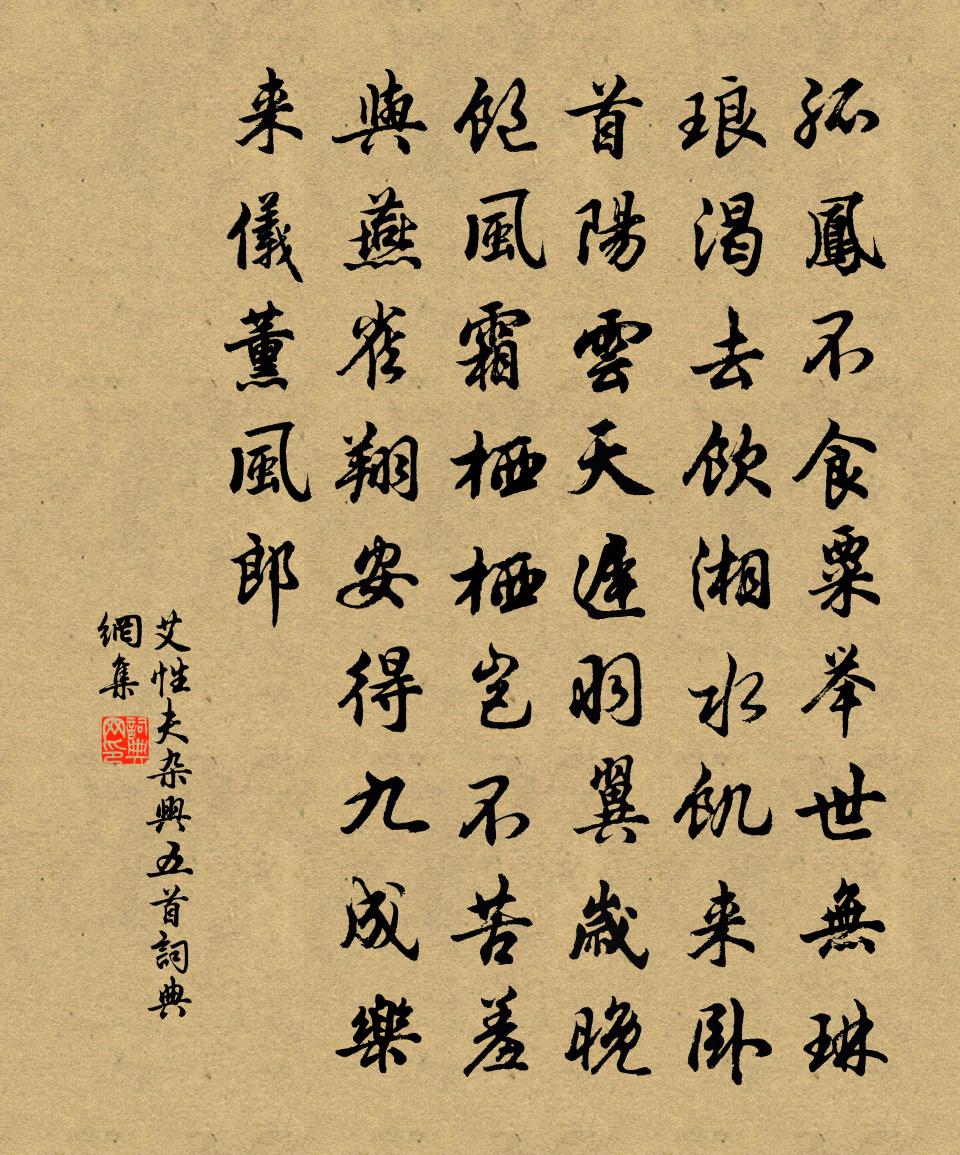 孤鳳不食粟举世無琳
琅渴去飲湘水飢来卧
首陽雲天遅羽翼歲晚
飽風霜栖栖岂不苦羞
與燕雀翔安得九成樂
来儀薰風郎
艾性夫杂興五首詞典
網集
詞典
网印